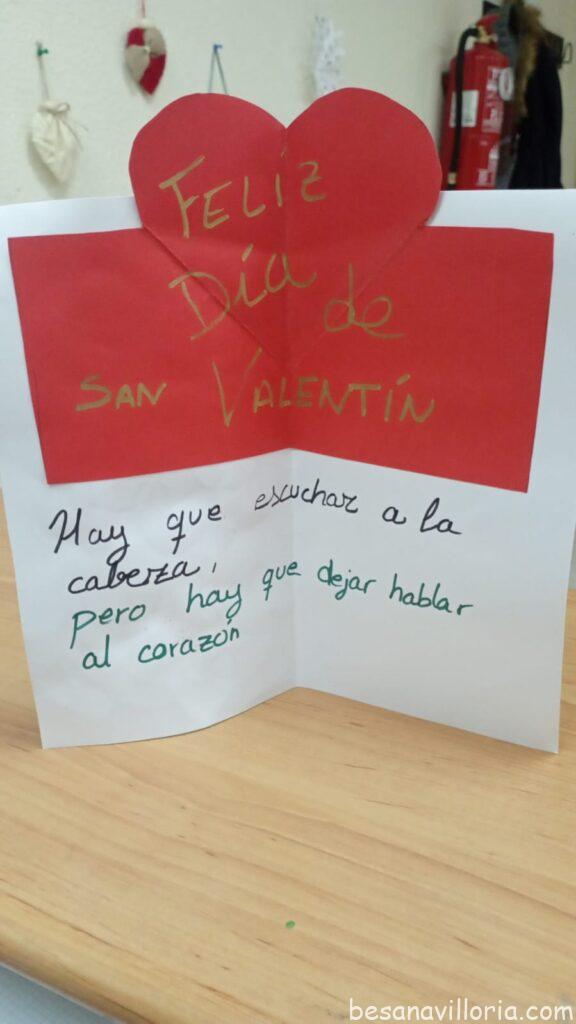 FELIZ
Día de
SAN VALENTÍN
Hay que escuchar a la
cabeza,
pero hay que dejar hablar
al corazón
besanavilloria.com